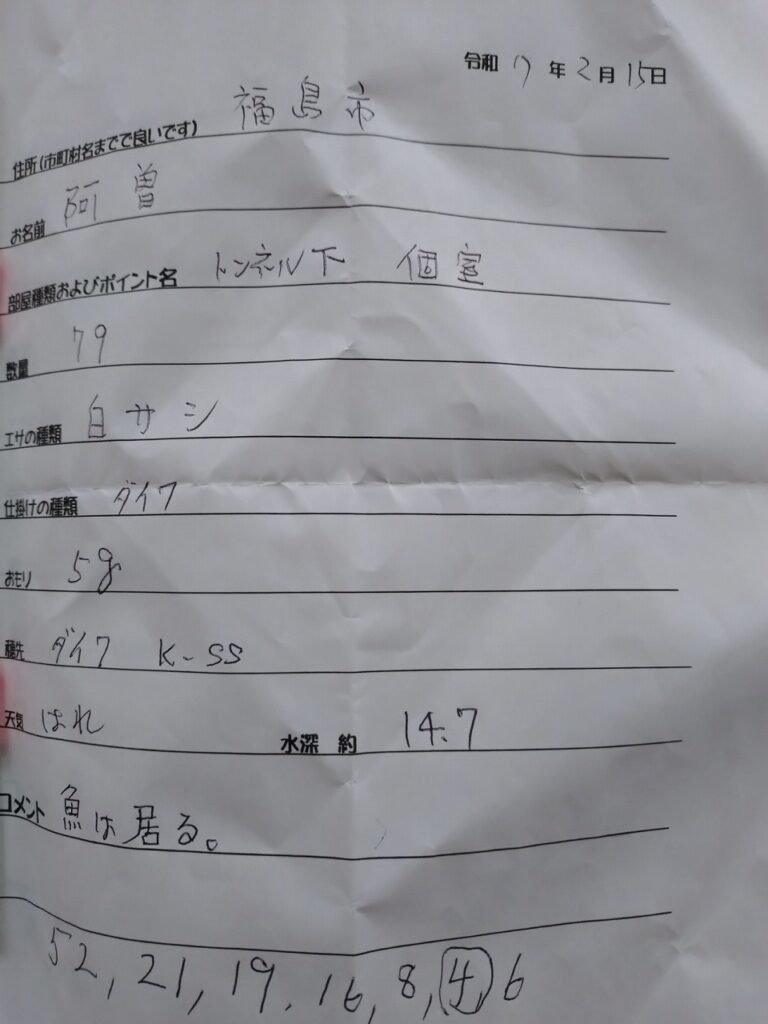 令和 7 年 2 月 15 日
住所(市町村名までで良いです) 福島市
お名前 阿曽
部屋種類およびポイント名 トンネル下 個室
数量 79
エサの種類 白サシ
仕掛けの種類 ダイワ
おもり 5g
穂先 ダイワ K-SS
天気 はれ 水深 約 14.7
コメント 魚は居る。
52, 21, 19. 16, 8, 4 6